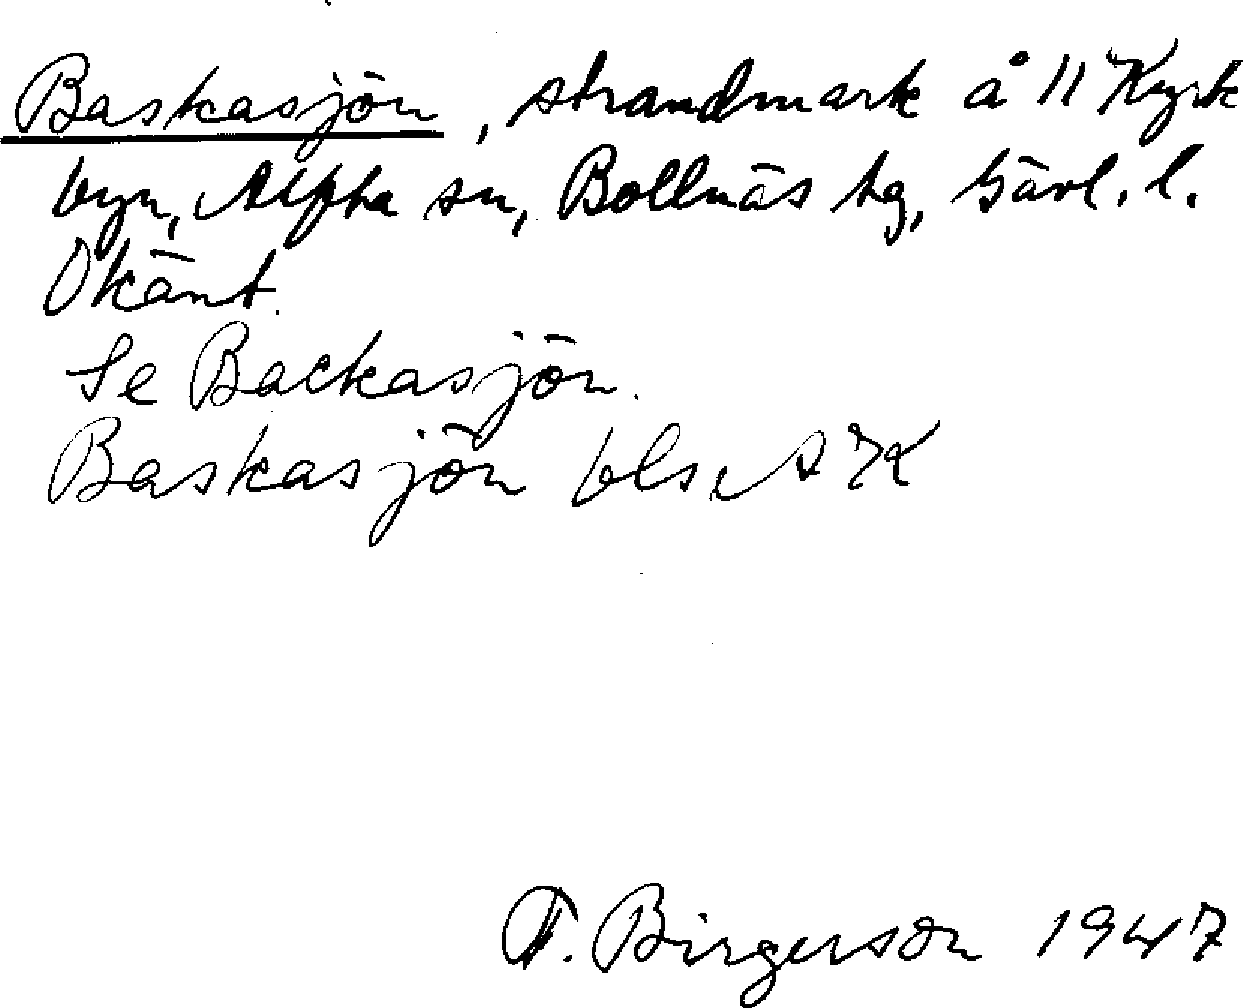 Baskasjön, strandmark å 11 Kyrk
byn, Alfta sn, Bollnäs tg, Gävl. l.
Okänt.
Se Backasjön.
Baskasjön bls. AK
T. Birgerson 1947